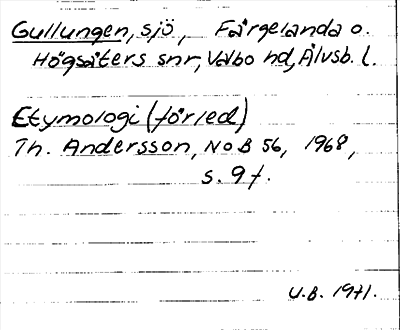 Gullungen, sjö, Färgelanda o.
Högsäters snr, Valbo hd, Älvsb. l.
Etymologi (förled)
Th. Andersson, NoB 56, 1968,
s. 9f.
U.B. 1971.